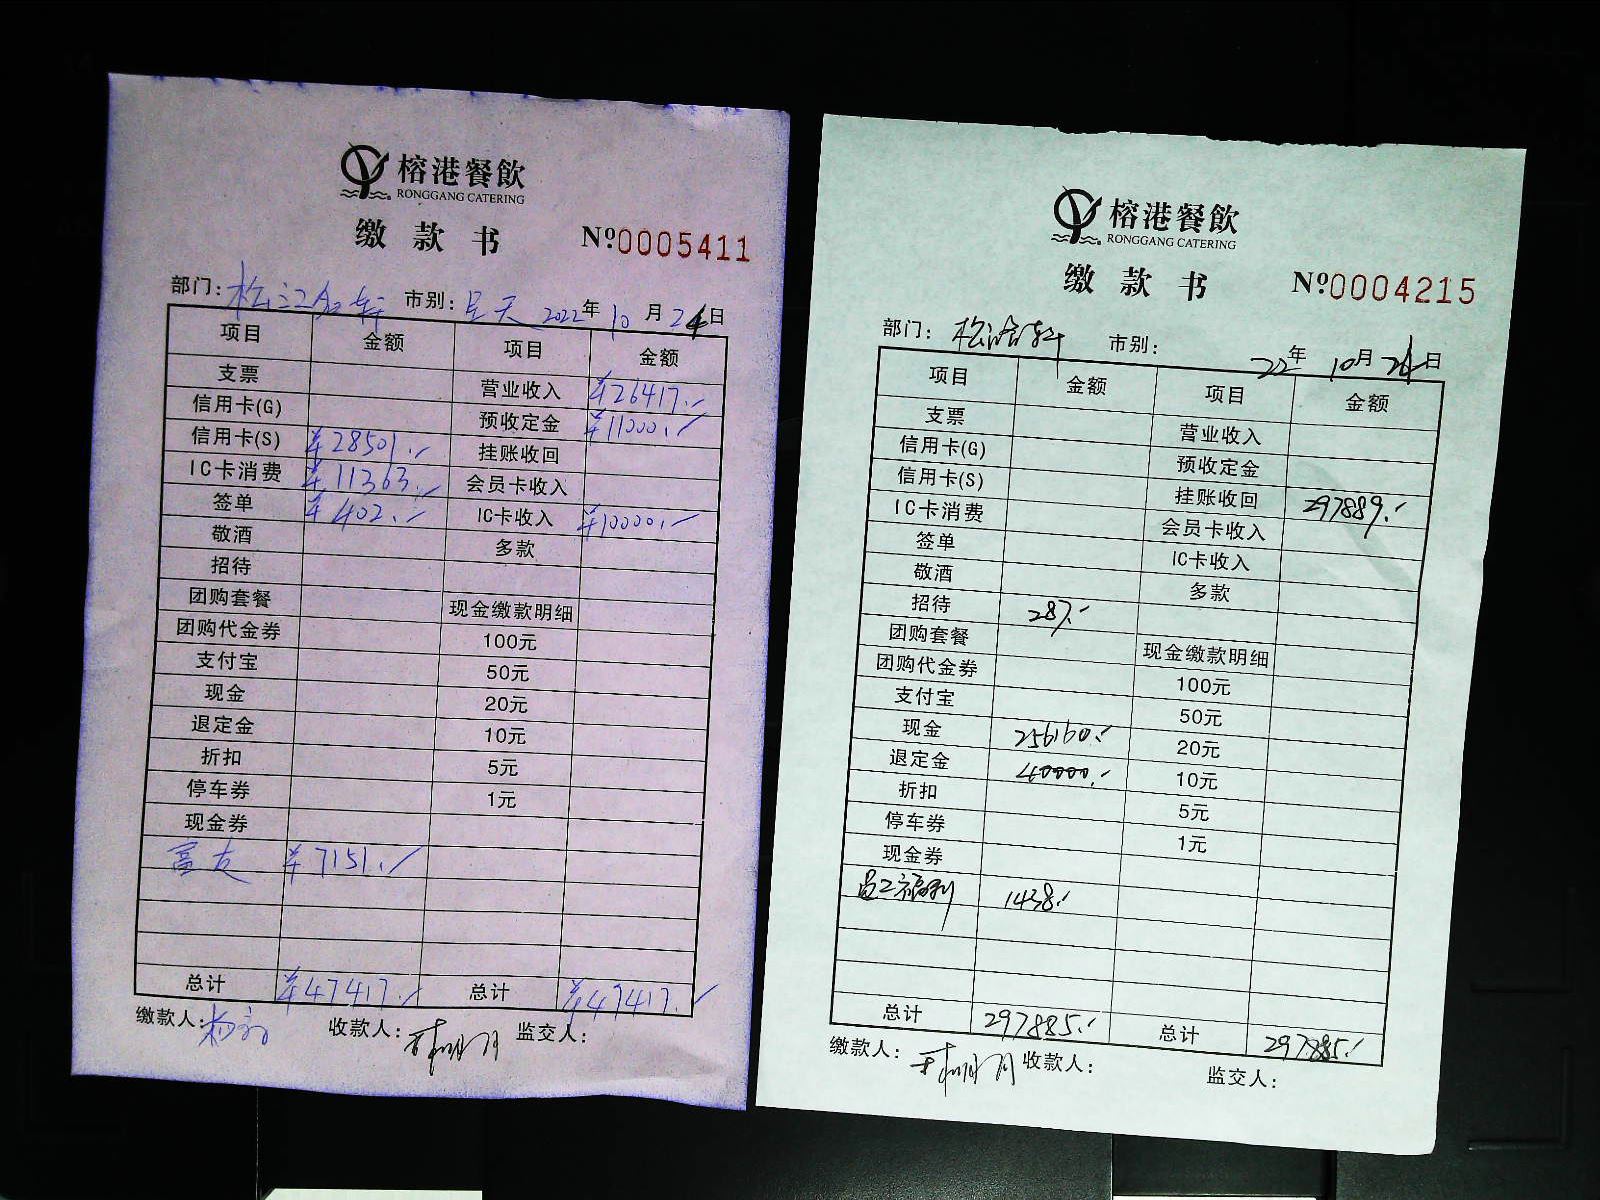 榕港餐飲
RONGGANG CATERING
缴款书 №0005411
部门: 松江 市别: 全天 2022年 10月 24日
项目 金额 项目 金额
支票 营业收入 ¥26417.-
信用卡(G) 预收定金 ¥11000.-
信用卡(S) ¥28501.- 挂账收回
IC卡消费 ¥11363.- 会员卡收入
签单 ¥402.- IC卡收入 ¥10000.-
敬酒 多款
招待
团购套餐 现金缴款明细
团购代金券 100元
支付宝 50元
现金 20元
退定金 10元
折扣 5元
停车券 1元
现金券
富友 ¥7151.-
总计 ¥47417.- 总计 ¥47417.-
缴款人: 收款人: 监交人:
榕港餐飲
RONGGANG CATERING
缴款书 №0004215
部门: 市别: 22年 10月 日
项目 金额 项目 金额
支票 营业收入
信用卡(G) 预收定金
信用卡(S) 挂账收回 297889.-
IC卡消费 会员卡收入
签单 IC卡收入
敬酒 多款
招待 287.-
团购套餐 现金缴款明细
团购代金券 100元
支付宝 50元
现金 256160.- 20元
退定金 40000.- 10元
折扣 5元
停车券 1元
现金券
员工福利 1438.-
总计 297885.- 总计 297885.-
缴款人: 收款人: 监交人: